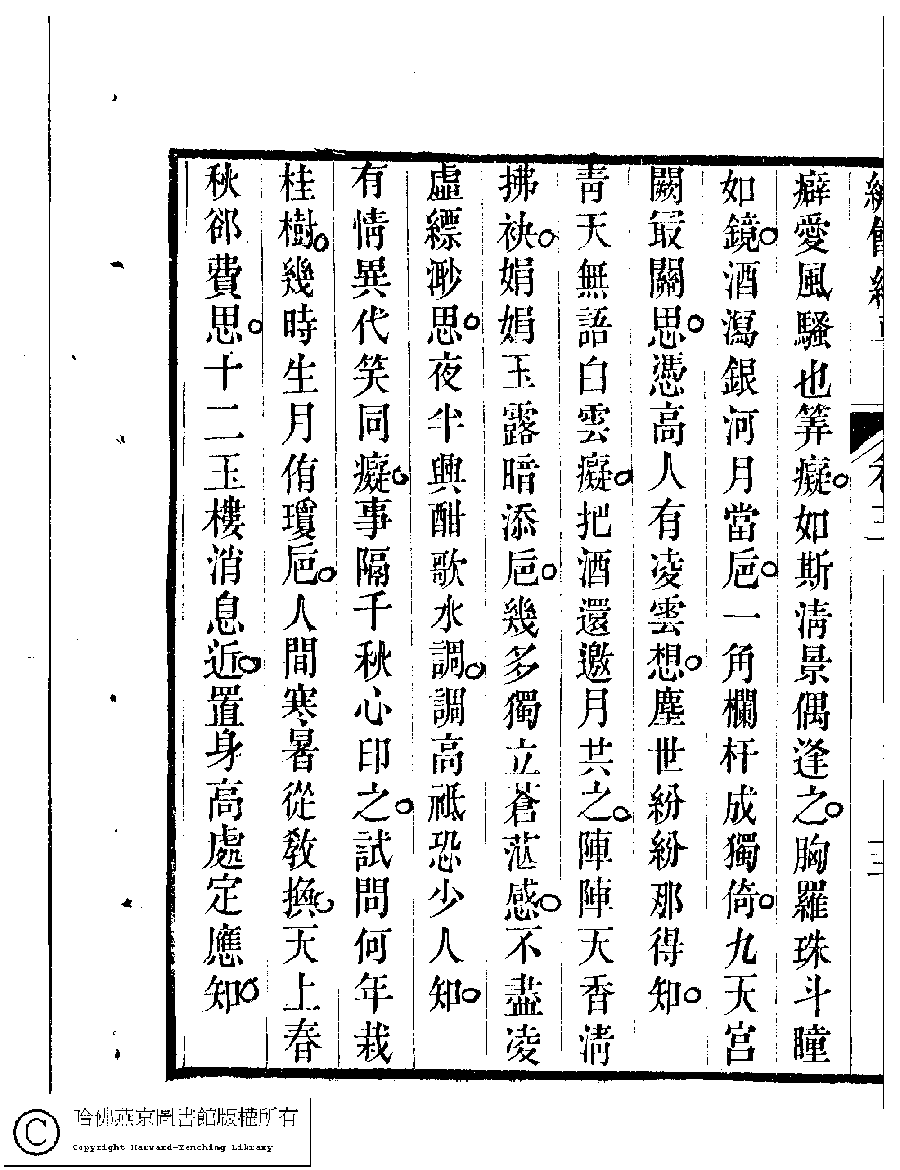 卷三
三
癖愛風騷也筭癡如斯淸景偶逢之胸羅珠斗瞳
如鏡酒瀉銀河月當巵一角欄杆成獨倚九天宮
闕最關思憑高人有凌雲想塵世紛紛那得知
靑天無語白雲癡把酒還邀月共之陣陣天香淸
拂袂娟娟玉露暗添巵幾多獨立蒼茫感不盡凌
虛縹渺思夜半興酣歌水調調高祗恐少人知
有情異代笑同癡事隔千秋心印之試問何年栽
桂樹幾時生月侑瓊巵人間寒暑從敎換天上春
秋郤費思十二玉樓消息近置身高處定應知
哈佛燕京圖書館版權所有
Copyright Harvard-Yenching Library